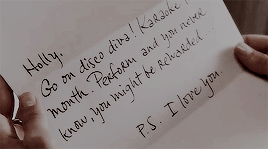 Holly,
Go on disco diva! Karaoke
month. Perform and you never
know, you might be rewarded...
P.S. I love you.